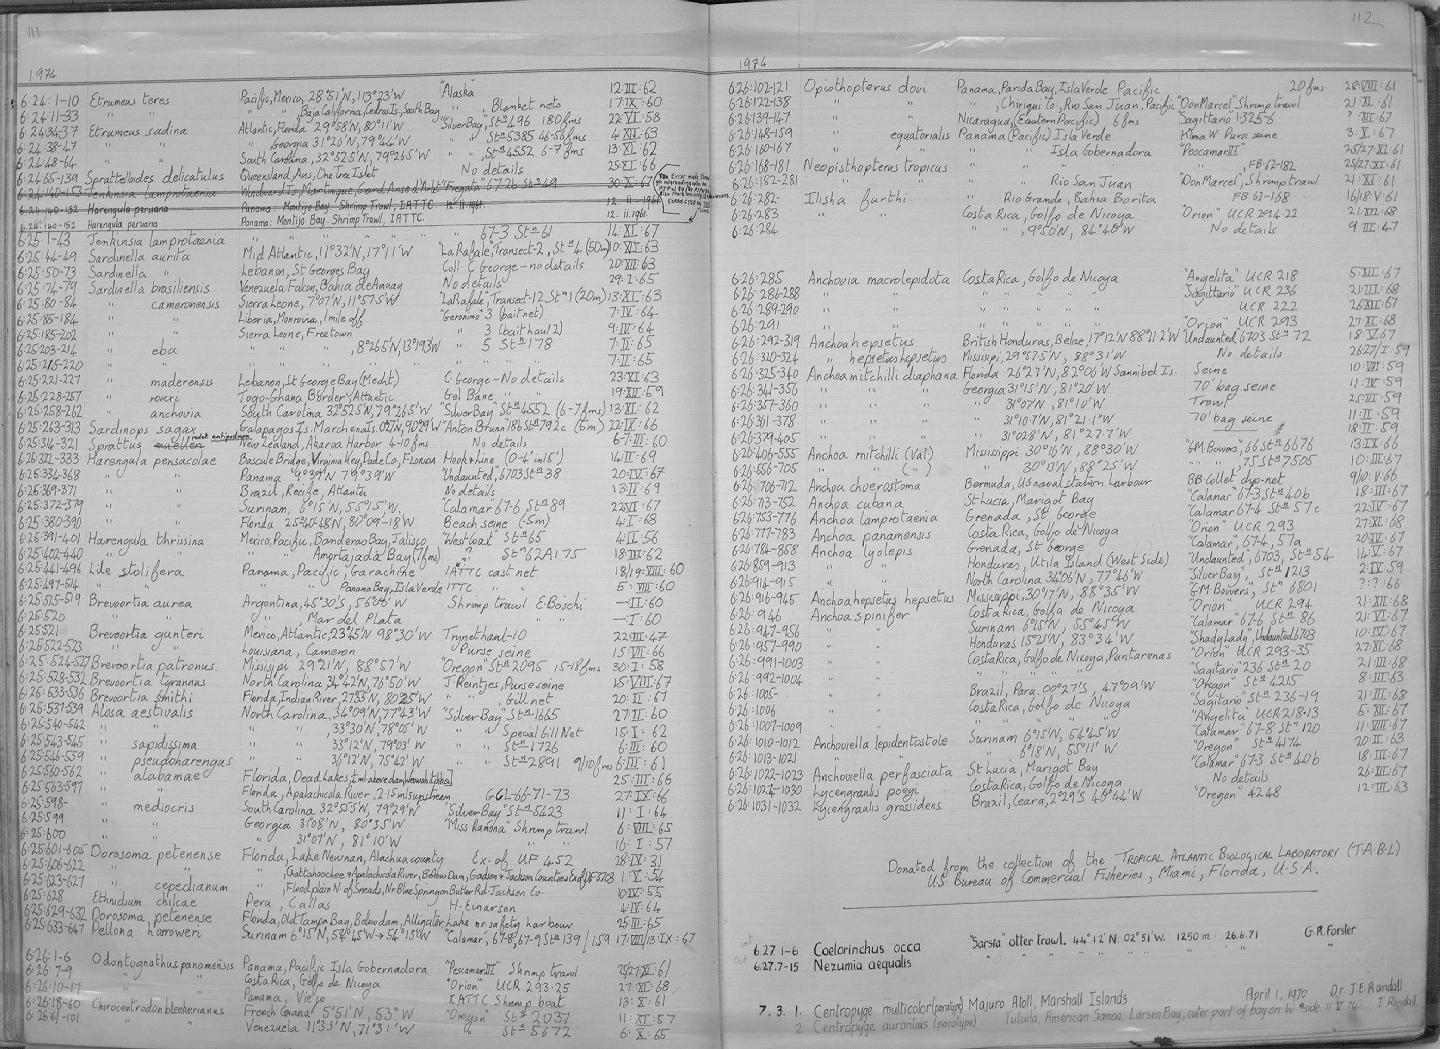 111
1974
6.24:1-10 Etrumeus teres Pacific, Mexico, 28°51'N, 113°23'W "Alaska" 12:III:62
6.24:11-33 " " " Baja California, Cedros Is, South Bay " , Blanket nets 17:IX:60
6.24:34-37 Etrumeus sadina Atlantic, Florida 29°58'N, 80°11'W "Silver Bay", Stn 496 180 fms 22:VI:58
6.24:38-47 " " " Georgia 31°26'N, 79°44'W " , Stn 5385 46-56fms 4:XII:63
6.24:48-64 " " South Carolina, 32°52.5'N, 79°26.5'W " , Stn 4552 6-7 fms 13:XI:62
6.24:65-139 Spratelloides delicatulus Queensland, Aus, One Tree Islet No details 25:XI:66
6.24:140-153 Jenkinsia lamprotaenia Windward Is, Martinique, Grand Anse d'Arlet "Fregata" 67-26 Stn 49 30:X:67
6.24:140-152 Harengula peruana Panama: Montijo Bay. Shrimp Trawl, IATTC. 12.II.1961
6.24:140-152 Harengula peruana Panama: Montijo Bay: Shrimp Trawl, IATTC. 12.II.1961
6.25:1-43 Jenkinsia lamprotaenia " " " " 67-3 Stn 61 14:XI:67
6.25:44-49 Sardinella aurita Mid Atlantic, 11°32'N, 17°11'W "La Rafale", Transect-2, Stn 4 (50m) 10:XII:63
6.25:50-73 Sardinella " Lebanon, St Georges Bay Coll C George - no details 20:XII:63
6.25:74-79 Sardinella brasiliensis Venezuela: Falcon, Bahia de Amuay No details 29:I:65
6.25:80-84 " cameronensis Sierra Leone, 7°07'N, 11°57.5'W "La Rafale", Transect-12 Stn 1 (20m) 13:XI:63
6.25:85-184 " " Liberia, Monrovia, 1 mile off "Geronimo" 3 (bait net) 7:IV:64
6.25:185-202 " " Sierra Leone, Freetown " 3 (bait haul 2) 9:IV:64
6.25:203-214 " eba " " , 8°26.5'N, 13°19.3'W " 5 Stn 178 7:II:65
6.25:215-220 " " " " " " " 7:II:65
6.25:221-227 " maderensis Lebanon, St George Bay (Medit) C George - No details 23:XI:63
6.25:228-257 " rouxi Togo-Ghana Border, Atlantic Gol Bane 19:XII:59
6.25:258-262 " anchovia South Carolina 32°52.5'N, 79°26.5'W "Silver Bay" Stn 4552 (6-7 fms) 13:XI:62
6.25:263-313 Sardinops sagax Galapagos Is. Marchena Is. "Anton Bruun" 18b Stn 792c (5m) 22:IX:66
6.25:314-321 Sprattus muelleri antipodum New Zealand, Akaroa Harbor 4-10 fms No details 6-7:III:60
6.25:322-333 Harengula pensacolae Bascule Bridge, Virginia Key, Dade Co, Florida Hook & Line (0-4' in 15') 14:II:69
6.25:334-368 " " Panama 9°39'N 79°39'W "Undaunted" 6703 Stn 38 20:IV:67
6.25:369-371 " " Brazil, Recife, Atlantic No details 13:II:69
6.25:372-379 " " Surinam, 6°15'N, 55°45'W "Calamar" 67-6 Stn 89 22:VI:67
6.25:380-390 " " Florida 25°40-48'N, 80°09-18'W Beach seine (.5m) 4:I:68
6.25:391-401 Harengula thrissina Mexico, Pacific, Banderao Bay, Jalisco "West Coast" Stn 65 4:II:56
6.25:402-440 " " " Amortajada Bay (7 fms) ? Stn 62A175 18:III:62
6.25:441-496 Lile stolifera Panama, Pacific, Garachine IATTC cast net 18/19:VIII:60
6.25:497-514 " " " Panama Bay, Isla Verde ITTC " 5:VIII:60
6.25:515-519 Brevoortia aurea Argentina, 45°30'S, 56°46'W Shrimp trawl E. Boschi —:II:60
6.25:520 " " " Mar del Plata " " —:I:60
6.25:521 Brevoortia gunteri Mexico, Atlantic, 23°45'N 98°30'W Trynet haul-10 22:III:47
6.25:522-523 " " Louisiana, Cameron Purse seine 15:VII:66
6.25:524-527 Brevoortia patronus. Missisipi 29°21'N, 88°57'W "Oregon" Stn 2095 15-18 fms 30:I:58
6.25:528-532 Brevoortia tyrannus North Carolina 34°42'N, 76°50'W J. Reintjes, Purse seine 15:VIII:67
6.25:533-536 Brevoortia smithi Florida, Indian River, 27°33'N, 80°25'W " , Gill net 20:II:67
6.25:537-539 Alosa aestivalis North Carolina, 34°09'N, 77°43'W "Silver Bay" Stn 1665 27:II:60
6.25:540-542 " " " , 33°30'N, 78°05'W " Special Gill Net 15:I:62
6.25:543-545 " sapidissima " " 33°12'N, 79°03'W " " Stn 1726 6:III:60
6.25:546-559 " pseudoharengus " " 36°12'N, 75°42'W " " Stn 2891 9/10 fms 6:III:61
6.25:560-562 " alabamae Florida, Dead Lakes, 25:III:66
6.25:563-597 " " Florida, Apalachicola River, 2.15 ml upstream GCL-66-71-73 27:IX:66
6.25:598- " mediocris South Carolina 32°53'5'N, 79°29'W "Silver Bay" Stn 5423 11:I:64
6.25:599 " " Georgia 31°08'N, 80°35'W "Miss Ramona" Shrimp trawl 6:VIII:65
6.25:600 " " " 31°07'N, 81°10'W " " " 16:I:57
6.25:601-605 Dorosoma petenense Florida, Lake Newnan, Alachua county Ex. of UF 452 28:IV:31
6.25:606-622 " " " , Chattahoochee & Apalachicola River, Below Dam, Gadsen & Jackson Counties 1:V:54
6.25:623-627 " cepedianum " , Flood plain N. of Sneads, Nr Blue Spring on Butler Rd. Jackson Co. 10:IV:55
6.25:628 Ethmidium chilcae Peru, Callas H. Einarson 4:IV:64
6.25:629-632 Dorosoma petenense Florida, Old Tampa Bay, Below dam, Alligator Lake nr. safety harbour 25:III:65
6.25:633-647 Pellona harroweri Surinam 6°15'N, 54°45'W → 54°15'W "Calamar", 67-8, 67-9 Stn 139 / 159 17:VIII/13:IX:67
6.26:1-6 Odontognathus panamensis Panama, Pacific Isla Gobernadora "Pescamar III" Shrimp trawl 25/27:XI:61
6.26:7-9 " " Costa Rica, Golfo de Nicoya "Orion" UCR 293-25 27:XI:68
6.26:10-17 " " Panama, Viejo IATTC Shrimp boat 13:X:61
6.26:18-60 Chirocentrodon bleekerianus French Guiana 5°51'N, 53°W "Oregon" Stn 2037 11:XI:57
6.26:61-101 " " Venezuela 11°33'N, 71°31'W " Stn 5672 6:X:65
112
1974
6.26:102-121 Opisthopterus dovi Panama, Parida Bay, Isla Verde Pacific 20 fms. 28:VIII:61
6.26:122-138 " " " , Chiriqui Co, Rio San Juan, Pacific "Don Marcel" Shrimp trawl 21:XI:61
6.26:139-147 " " Nicaragua, (Eastern Pacific) 6 fms "Sagittario" 1-325-6 ?:VII:67
6.26:148-159 " equatorialis Panama (Pacific) Isla Verde Kima W Purse seine 3:X:67
6.26:160-167 " " " Isla Gobernadora "Pescamar III" 25/27:XI:61
6.26:168-181 Neopisthopterus tropicus " " " , FB 62-182 25/27:XI:61
6.26:182-281 " " " Rio San Juan "Don Marcel", Shrimp trawl 21:XI:61
6.26:282- Ilisha furthi " Rio Grande, Bahia Borita FB 62-168 16/18:V:61
6.26:283 " " Costa Rica, Golfo de Nicoya "Orion" UCR 294-22 21:XII:68
6.26:284 " " " " , 9°50'N, 84°40'W No details 9:III:47
6.26:285 Anchovia macrolepidota Costa Rica, Golfo de Nicoya "Angelita" UCR 218 5:XII:67
6.26:286-288 " " " " " "Sagittario" UCR 236 21:III:68
6.26:289-290 " " " " " UCR 222 26:XII:67
6.26:291 " " " " " "Orion" UCR 293 27:XI:68
6.26:292-319 Anchoa hepsetus British Honduras, Belize, 17°12'N 88°11.2'W Undaunted 6703 Stn 72 18:V:67
6.26:320-324 " hepsetus hepsetus Missisipi, 29°57.5'N, 88°31'W No details 26-27/I:59
6.26:325-340 Anchoa mitchilli diaphana Florida 26°27'N, 82°06'W Sannibel Is. Seine 10:VII:59
6.26:341-356 " " " Georgia 31°15'N, 81°20'W 70' bag seine 11:IV:59
6.26:357-360 " " " " 31°07'N, 81°10'W Trawl 25:III:59
6.26:361-378 " " " " 31°10.7'N, 81°21.1'W 70' bag seine 11:II:59
6.26:379-405 " " " " 31°02.8'N, 81°27.7'W " 18:II:59
6.26:406-555 Anchoa mitchilli (Val) Missisippi 30°16'N, 88°30'W "GM Bowers", 66 Stn 6676 13:IX:66
6.26:556-705 " " (") " 30°13'N, 88°25'W " , 75 Stn 7505 10:III:67
6.26:706-712 Anchoa choerostoma Bermuda, US naval station harbour BB Collet dip-net 9/10:V:66
6.26:713-752 Anchoa cubana St Lucia, Marigot Bay "Calamar" 67-3 Stn 40b 18:III:67
6.26:753-776 Anchoa lamprotaenia Grenada, St George "Calamar" 67-4 Stn 57c 22:IV:67
6.26:777-783 Anchoa panamensis Costa Rica, Golfo de Nicoya "Orion" UCR 293 27:XI:68
6.26:784-858 Anchoa lyolepis Grenada, St George "Calamar", 67-4, 57a 20:IV:67
6.26:859-913 " " Honduras, Utila Island (West Side) "Undaunted", 6703, Stn 54 14:V:67
6.26:914-915 " " North Carolina 34°06'N, 77°46'W "Silver Bay", Stn 1213 2:IV:59
6.26:916-945 Anchoa hepsetus hepsetus Missisippi, 30°17'N, 88°35'W "G.M. Bowers", Stn 6801 ?:?:66
6.26:946 Anchoa spinifer Costa Rica, Golfo de Nicoya "Orion" UCR 294 21:XII:68
6.26:947-956 " " Surinam 6°15'N, 55°45'W "Calamar" 67-6 Stn 86 21:VI:67
6.26:957-990 " " Honduras 15°21'N, 83°34'W "Shady Lady", Undaunted 6703 10:IV:67
6.26:991-1003 " " Costa Rica, Golfo de Nicoya, Puntarenas "Orion" UCR 293-35 27:XI:68
6.26:992-1004 " " " " " "Sagitario" 236 Stn 20 21:III:68
6.26:1005- " " Brazil, Para. 00°27'S, 47°09'W "Oregon" Stn 4215 8:III:63
6.26:1006 " " Costa Rica, Golfo de Nicoya "Sagitario" Stn 236-19 21:III:68
6.26:1007-1009 " " " " " "Angelita" UCR 218-13 5:XII:67
6.26:1010-1012 Anchoviella lepidentostole Surinam 6°15'N, 54°45'W "Calamar" 67-8 Stn 120 11:VIII:67
6.26:1013-1021 " " " 6°18'N, 55°11'W "Oregon" Stn 4174 20:II:63
6.26:1022-1023 Anchoviella perfasciata St Lucia, Marigot Bay "Calamar" 67-3 Stn 40b 18:III:67
6.26:1024-1030 Lycengraulis poeyi Costa Rica, Golfo de Nicoya No details 26:XII:67
6.26:1031-1032 Lycengraulis grossidens Brazil, Ceara, 2°29'S 40°44'W "Oregon" 4248 12:III:63
Donated from the collection of the TROPICAL ATLANTIC BIOLOGICAL LABORATORY (T.A.B.L)
U.S. Bureau of Commercial Fisheries, Miami, Florida, U.S.A.
6.27.1-6 Coelorinchus occa "Sarsia" otter trawl. 44°12'N. 02°51'W. 1250 m. 26.6.71 G.R. Forster
6.27.7-15 Nezumia aequalis " " " " " "
7.3.1. Centropyge multicolor (paratype) Majuro Atoll, Marshall Islands April 1, 1970 Dr. J E Randall
2 Centropyge aurantius (paratype) Tutuila, American Samoa: Larsen Bay, outer part of bay on W. side. 11 V 74 J Randall